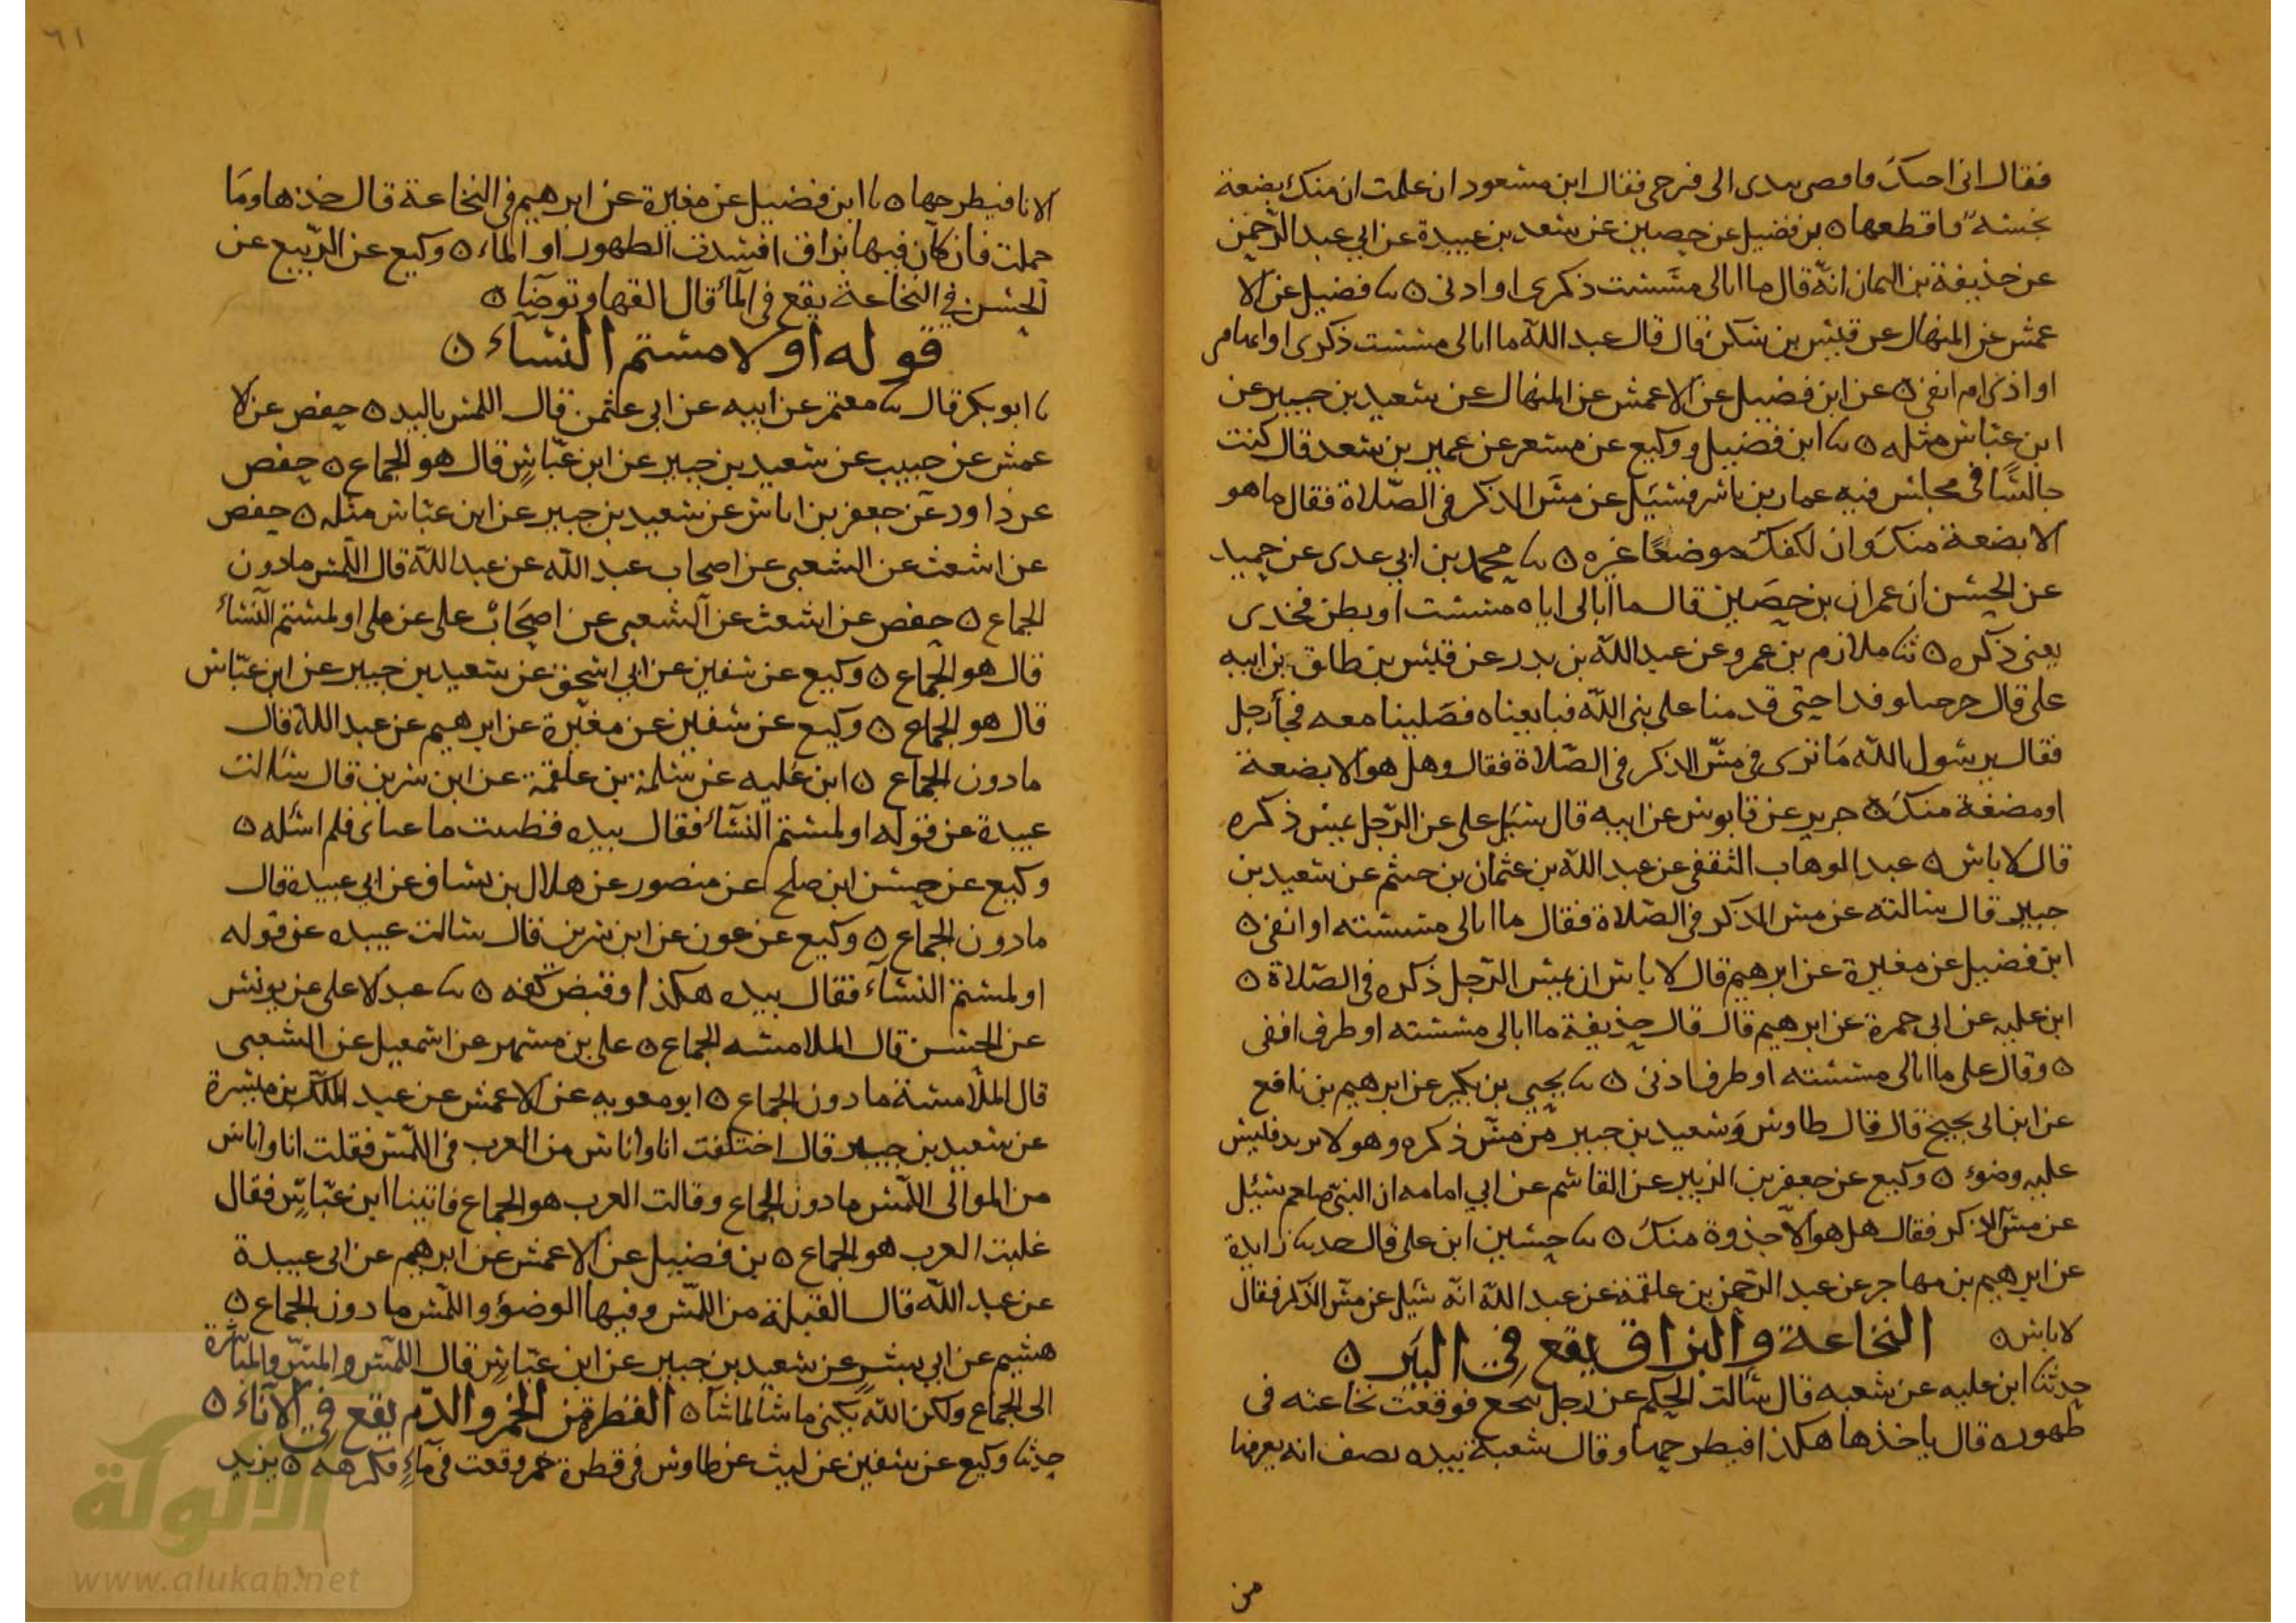 فقال انى احتك فافضى بيدى الى فرجى فقال ابن مسعود ان علمت ان منك بضعة
نجسة فاقطعها ٥ بن فضيل عن حصين عن سعد بن عبيدة عن ابي عبد الرحمن
عن حذيفة بن اليمان انه قال ما ابالى مسست ذكرى او اذنى ٥ ثنا فضيل عن الا
عمش عن المنهال عن قيس بن سكن قال قال عبد الله ما ابالى مسست ذكرى او ابهامى
او اذنى ام انفى ٥ عن ابن فضيل عن الاعمش عن المنهال عن سعيد بن جبير عن
ابن عباس مثله ٥ ثنا ابن فضيل ووكيع عن مسعر عن عمير بن سعد قال كنت
جالسا فى مجلس فيه عمار بن ياسر فسئل عن مس الذكر فى الصلاة فقال ما هو
الا بضعة منك وان لكفك موضعا غيره ٥ ثنا محمد بن ابي عدى عن حميد
عن الحسن ان عمران بن حصين قال ما ابالى اياه مسست او بطن فخذى
يعنى ذكره ٥ ثنا ملازم بن عمرو عن عبد الله بن بدر عن قيس بن طلق عن ابيه
على قال خرجنا وفدا حتى قدمنا على نبى الله فبايعناه فصلينا معه فجأ رجل
فقال يرسول الله ما ترى فى مس الذكر فى الصلاة فقال وهل هو الا بضعة
او مضغة منك ٥ جرير عن قابوس عن ابيه قال سئل على عن الرجل يمس ذكره
قال لا باس ٥ عبد الوهاب الثقفى عن عبد الله بن عثمان بن خثيم عن سعيد بن
جبير قال سالته عن مس الذكر فى الصلاة فقال ما ابالى مسسته او انفى ٥
ابن فضيل عن مغيرة عن ابرهيم قال لا باس ان يمس الرجل ذكره فى الصلاة ٥
ابن عليه عن ابى حمزة عن ابرهيم قال قال حذيفة ما ابالى مسسته او طرف انفى
٥ وقال على ما ابالى مسسته او طرف اذنى ٥ ثنا يحيى بن بكير عن ابرهيم بن نافع
عن ابن ابى نجيح قال قال طاوس وسعيد بن جبير من مس ذكره وهو لا يريد فليس
عليه وضوء ٥ وكيع عن جعفر بن الزبير عن القاسم عن ابي امامه ان النبى صلعم سئل
عن مس الذكر فقال هل هو الا جذوة منك ٥ ثنا حسين ابن على قال حدثنا زايدة
عن ابرهيم بن مهاجر عن عبد الرحمن بن علقمة عن عبد الله انه سئل عن مس الذكر فقال
لا باس ٥ النخاعة والبزاق يقع في البئر ٥
حدثنا ابن عليه عن شعبه قال سألت الحكم عن رجل تنخع فوقعت نخاعته فى
طهوره قال ياخذها هكذا فيطرحها وقال شعبة بيده يصف انه يغرفها
من
٦١
الانا فيطرحها ٥ ثنا ابن فضيل عن مغيرة عن ابرهيم فى النخاعة قال خذها وما
حملت فان كان فيها بزاق افسدت الطهور او الماء ٥ وكيع عن الربيع عن
الحسن في النخاعة يقع فى المأ قال القها وتوضا ٥
قوله او لامستم النساء ٥
ثنا ابو بكر قال ثنا معتمر عن ابيه عن ابي عثمن قال اللمس باليد ٥ حفص عن الا
عمش عن حبيب عن سعيد بن جبير عن ابن عباس قال هو الجماع ٥ حفص
عن داود عن جعفر بن اياس عن سعيد بن جبير عن ابن عباس مثله ٥ حفص
عن اشعث عن الشعبى عن اصحاب عبد الله عن عبد الله قال اللمس ما دون
الجماع ٥ حفص عن اشعث عن الشعبى عن اصحاب على عن على او لمستم النساء
قال هو الجماع ٥ وكيع عن سفين عن ابي اسحق عن سعيد بن جبير عن ابن عباس
قال هو الجماع ٥ وكيع عن سفين عن مغيرة عن ابرهيم عن عبد الله قال
ما دون الجماع ٥ ابن عليه عن سلمة بن علقمة عن ابن سرين قال سالت
عبيدة عن قوله او لمستم النسآء فقال بيده فظننت ما عنى فلم اسئله ٥
وكيع عن حسن ابن صلح عن منصور عن هلال بن يساف عن ابي عبيدة قال
ما دون الجماع ٥ وكيع عن عون عن ابن سرين قال سالت عبيده عن قوله
او لمستم النسآء فقال بيده هكذا وقبض كفه ٥ ثنا عبد الاعلى عن يونس
عن الحسن قال الملامسه الجماع ٥ على بن مسهر عن اسمعيل عن الشعبى
قال الملامسة ما دون الجماع ٥ ابو معويه عن الاعمش عن عبد الملك بن ميسرة
عن سعيد بن جبير قال اختلفت انا واناس من العرب فى اللمس فقلت انا واناس
من الموالى اللمس ما دون الجماع وقالت العرب هو الجماع فاتينا ابن عباس فقال
غلبت العرب هو الجماع ٥ بن فضيل عن الاعمش عن ابرهيم عن ابى عبيدة
عن عبد الله قال القبلة من اللمس وفيها الوضؤ واللمس ما دون الجماع ٥
هشيم عن ابي بشر عن سعيد بن جبير عن ابن عباس قال اللمس والمس والمباشرة
الى الجماع ولكن الله يكنى ما شا لما شا ٥ القطرة من الخمر والدم يقع فى الاناء ٥
حدثنا وكيع عن سفين عن ليث عن طاوس فى قطرة خمر وقعت فى ماء فكرهه ٥ يزيد
الألوكة
www.alukah.net